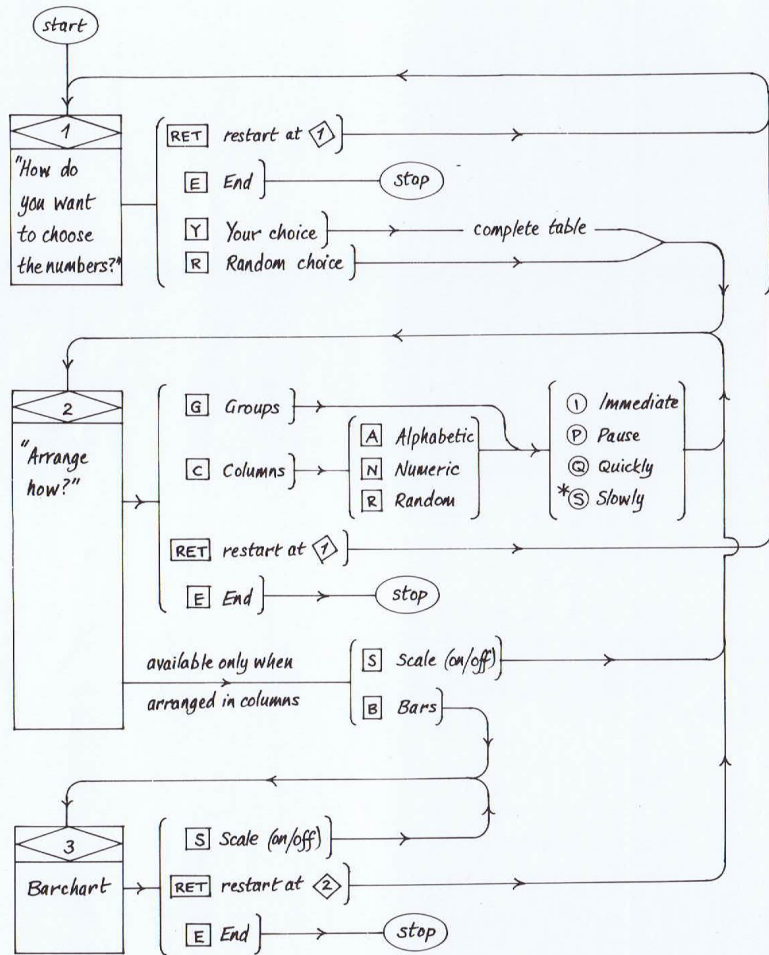 start
1
"How do
you want
to choose
the numbers?"
RET restart at 1
E End
stop
Y Your choice
complete table
R Random choice
2
"Arrange
how?"
G Groups
C Columns
A Alphabetic
N Numeric
R Random
I Immediate
P Pause
Q Quickly
*S Slowly
RET restart at 1
E End
stop
available only when
arranged in columns
S Scale (on/off)
B Bars
3
Barchart
S Scale (on/off)
RET restart at 2
E End
stop